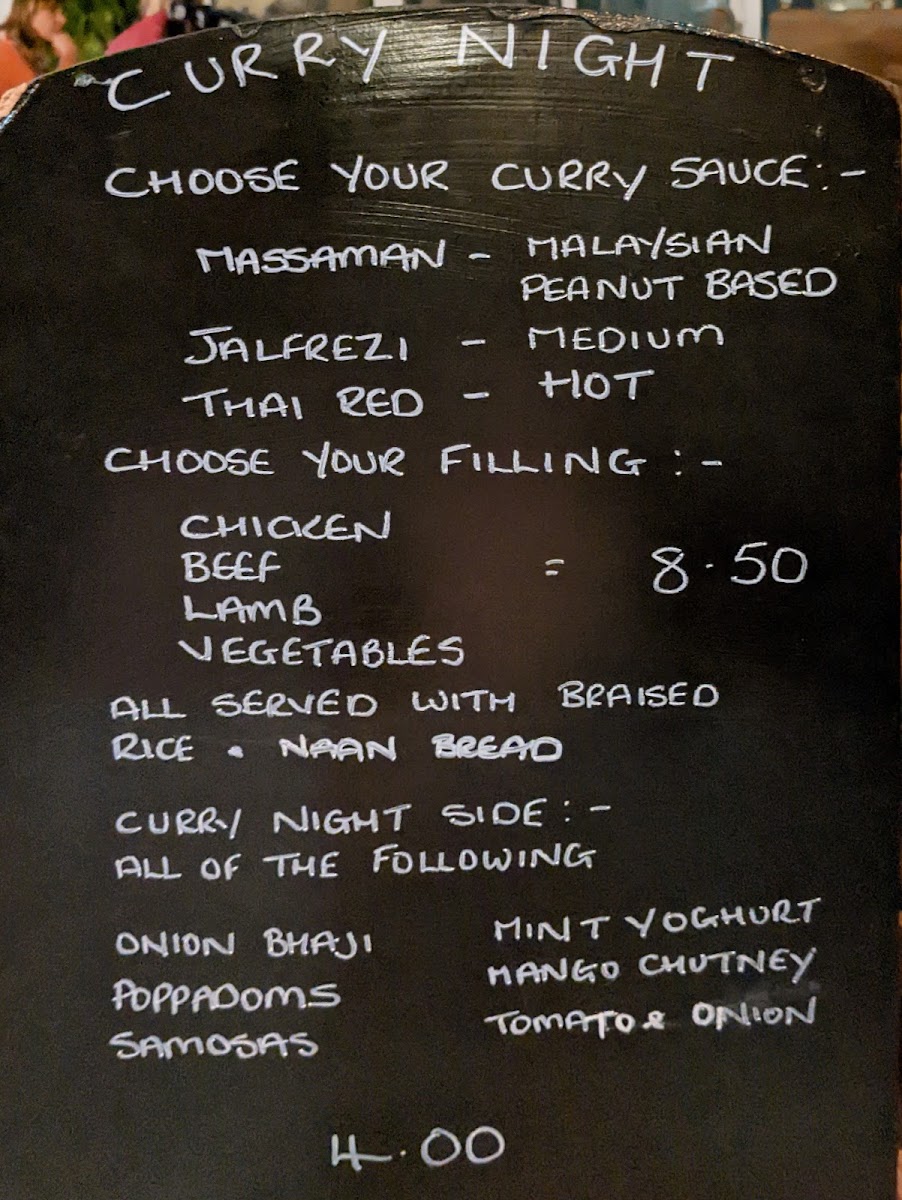 CURRY NIGHT
CHOOSE YOUR CURRY SAUCE:-
MASSAMAN - MALAYSIAN
PEANUT BASED
JALFREZI - MEDIUM
THAI RED - HOT
CHOOSE YOUR FILLING :-
CHICKEN
BEEF = 8.50
LAMB
VEGETABLES
ALL SERVED WITH BRAISED
RICE & NAAN BREAD
CURRY NIGHT SIDE:-
ALL OF THE FOLLOWING
ONION BHAJI MINT YOGHURT
POPPADOMS MANGO CHUTNEY
SAMOSAS TOMATO & ONION
4.00